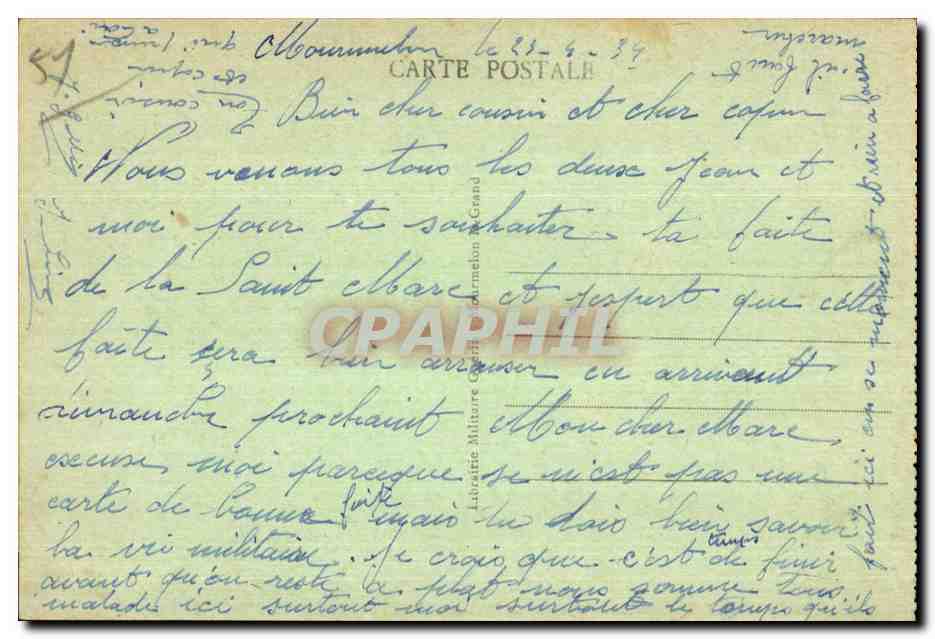 Mourmelon le 23-4-34
CARTE POSTALE
Bien cher cousin et cher copin
Nous venons tous les deux Jean et
moi pour te souhaiter ta faite
de la Saint Marc et j'espert que cette
faite sera bien arroser en arrivant
dimanche prochaint Mon cher Marc
excuse moi parceque se n'est pas une
carte de bonne faite mais tu dois bien savoir
la vie militaire. Je croix que c'est temps de finir
avant qu'on reste a plat nous somme tous
malade ici surtout moi surtout le temps qu'ils
fait ici en se moment et rien a fourré
il faut
marcher
Ton cousin
et copin
qui
Librairie Militaire Guérin Mourmelon-le-Grand
CPARPHIL